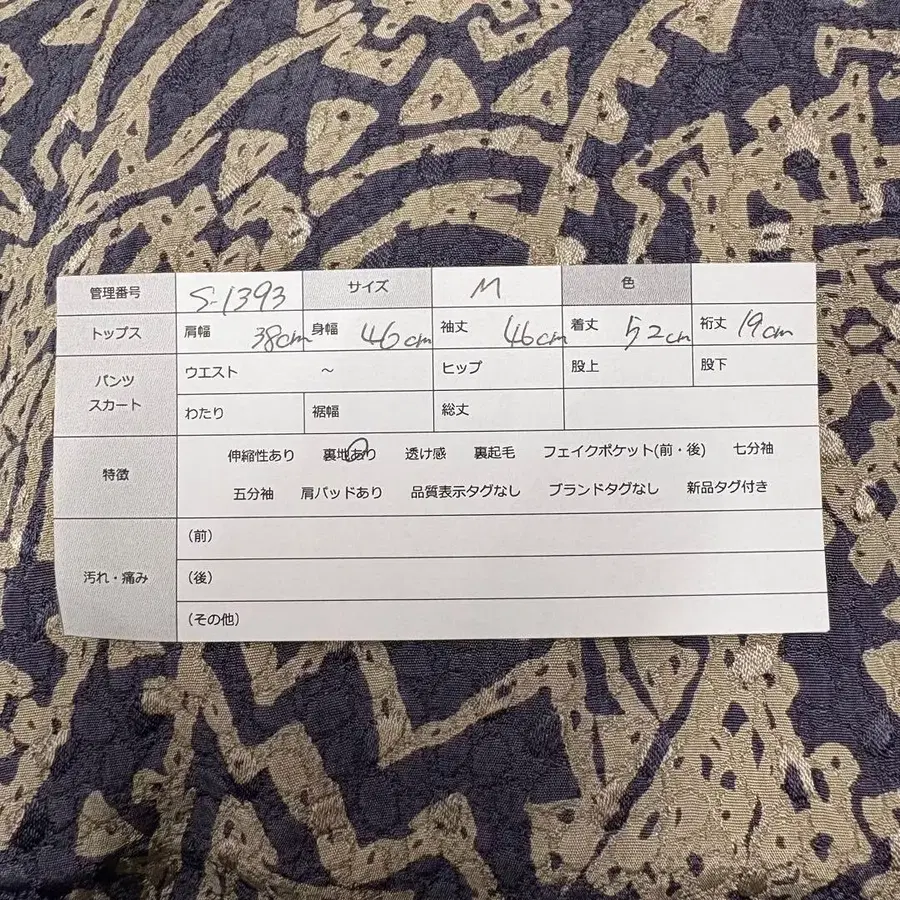 管理番号 S-1393 サイズ M 色
トップス 肩幅 38cm 身幅 46cm 袖丈 46cm 着丈 52cm 裄丈 19cm
パンツ スカート ウエスト ～ ヒップ 股上 股下
わたり 裾幅 総丈
特徴 伸縮性あり 裏地あり 透け感 裏起毛 フェイクポケット(前・後) 七分袖
五分袖 肩パッドあり 品質表示タグなし ブランドタグなし 新品タグ付き
汚れ・痛み (前)
(後)
(その他)